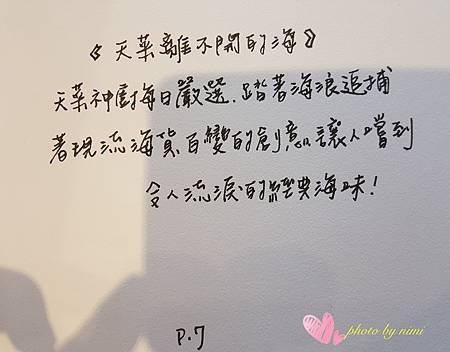 《天菜離不開的海》
天菜神廚每日嚴選.踏著海浪追捕
著現流海貨百變的創意讓人嚐到
令人流淚的經典海味!
photo by nimi
P.7